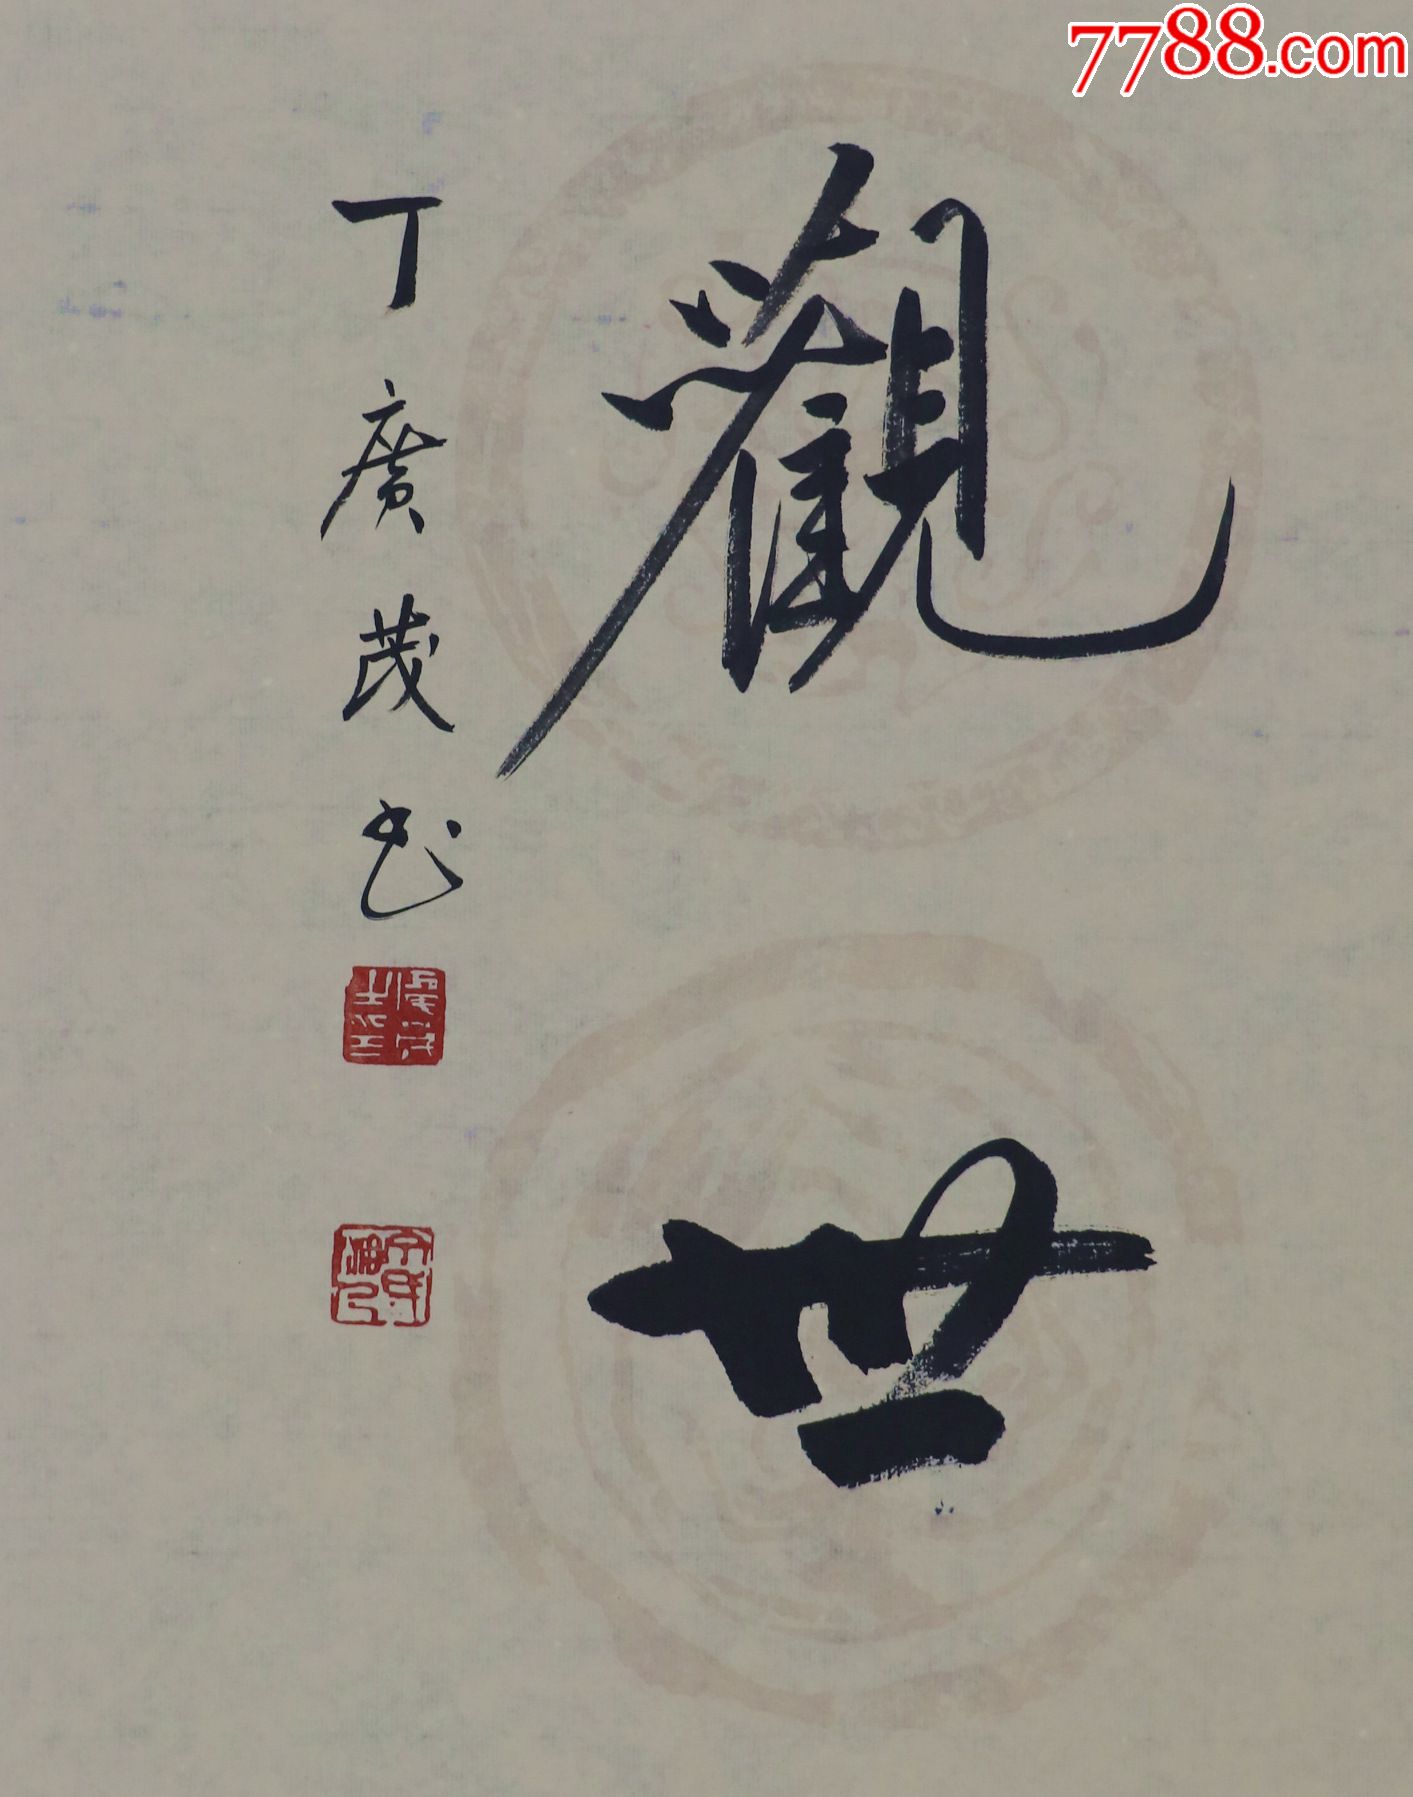 7788.com
觀世
丁廣茂书